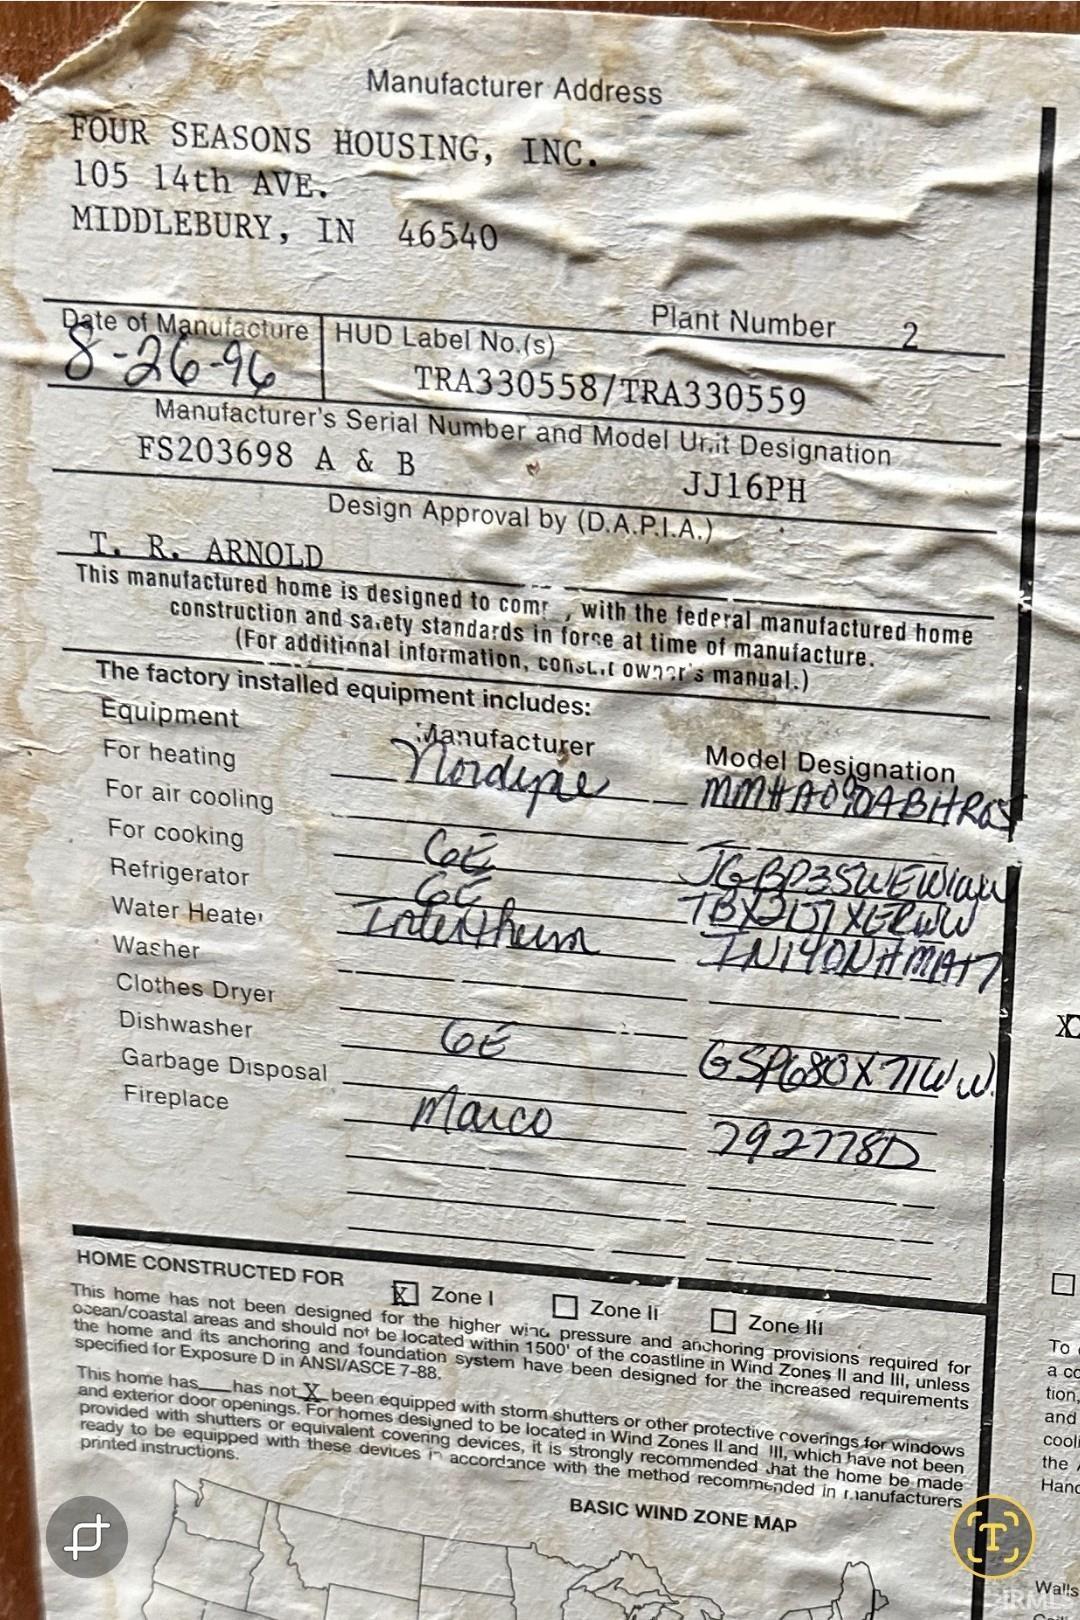 Manufacturer Address
FOUR SEASONS HOUSING, INC.
105 14th AVE.
MIDDLEBURY, IN 46540
Plant Number 2
Date of Manufacture HUD Label No.(s)
8-26-96 TRA330558/TRA330559
Manufacturer's Serial Number and Model Unit Designation
FS203698 A & B JJ16PH
Design Approval by (D.A.P.I.A.)
T. R. ARNOLD
This manufactured home is designed to with the federal manufactured home
construction and safety standards in force at time of manufacture.
(For additional information, consult owner's manual.)
The factory installed equipment includes:
Equipment Manufacturer Model Designation
For heating Nordyne
For air cooling
For cooking GE
Refrigerator GE
Water Heater Intertherm
Washer
Clothes Dryer
Dishwasher GE GSP680X71WW
Garbage Disposal
Fireplace Marco 792778D
HOME CONSTRUCTED FOR X Zone I Zone II Zone III
This home has not been designed for the higher wind pressure and anchoring provisions required for
ocean/coastal areas and should not be located within 1500' of the coastline in Wind Zones II and III, unless
the home and its anchoring and foundation system have been designed for the increased requirements
specified for Exposure D in ANSI/ASCE 7-88.
This home has___has not X been equipped with storm shutters or other protective coverings for windows
and exterior door openings. For homes designed to be located in Wind Zones II and III, which have not been
provided with shutters or equivalent covering devices, it is strongly recommended that the home be made
ready to be equipped with these devices in accordance with the method recommended in manufacturers
printed instructions.
BASIC WIND ZONE MAP
X
To
a
tion,
and
the
Walls
IRMLS